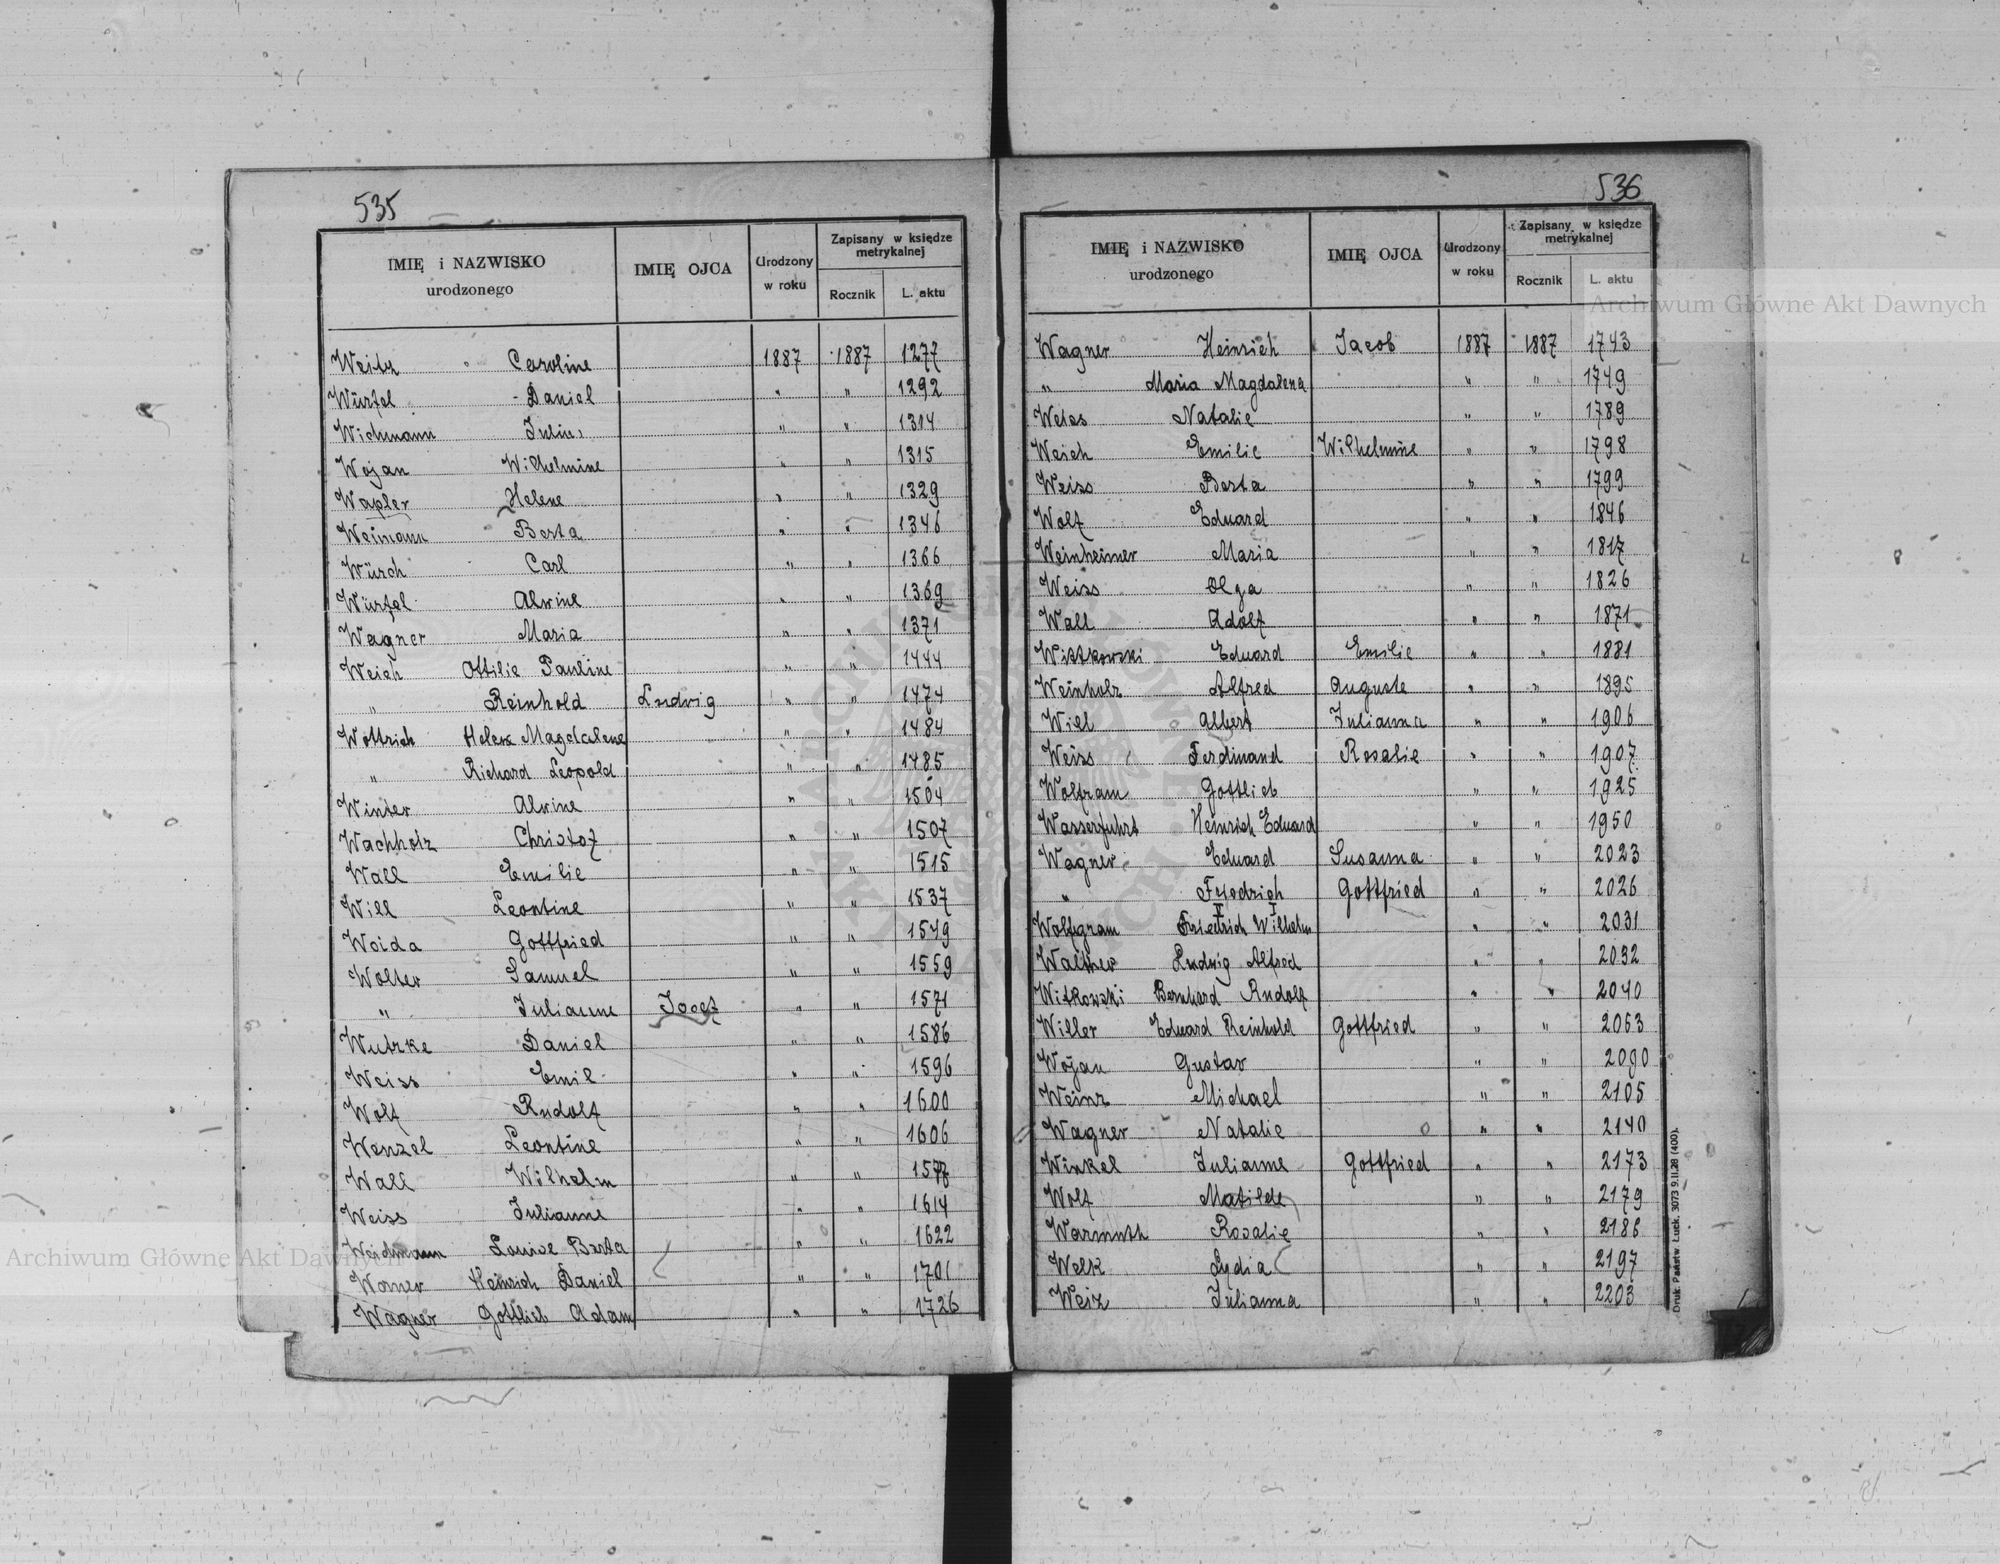 535
IMIĘ i NAZWISKO urodzonego IMIĘ OJCA Urodzony w roku Zapisany w księdze metrykalnej Rocznik L. aktu
Weitz Caroline 1887 1887 1277
Würfel Daniel " " 1292
Wichmann Julius " " 1314
Wojan Wilhelmine " " 1315
Wapler Helene " " 1329
Weimann Berta " " 1346
Würch Carl " " 1366
Würfel Alwine " " 1369
Wagner Maria " " 1371
Weich Ottilie Pauline " " 1444
" Reinhold Ludwig " " 1474
Wottrich Helene Magdalene " " 1484
" Richard Leopold " " 1485
Winter Alwine " " 1504
Wachholz Christof " " 1507
Wall Emilie " " 1515
Will Leontine " " 1537
Woida Gottfried " " 1549
Wolter Samuel " " 1559
" Julianne Josef " " 1571
Wutzke Daniel " " 1586
Weiss Emil " " 1596
Wolf Rudolf " " 1600
Wenzel Leontine " " 1606
Wall Wilhelm " "
Weiss Julianne " " 1614
Weidmann Louise Berta " " 1622
Worner Heinrich Daniel " " 1701
Wagner Gottlieb Adam " " 1726
536
IMIĘ i NAZWISKO urodzonego IMIĘ OJCA Urodzony w roku Zapisany w księdze metrykalnej Rocznik L. aktu
Wagner Heinrich Jacob 1887 1887 1743
" Maria Magdalena " " 1749
Weiss Natalie " " 1789
Weich Emilie Wilhelmine " " 1798
Weiss Berta " " 1799
Wolf Eduard " " 1846
Weinheimer Maria " " 1817
Weiss Olga " " 1826
Wall Adolf " " 1871
Wittkowski Eduard Emilie " " 1881
Weinholz Alfred Auguste " " 1895
Will Albert Julianna " " 1906
Weiss Ferdinand Rosalie " " 1907
Wolfram Gottlieb " " 1925
Wasserfuhrt Heinrich Eduard " " 1950
Wagner Eduard Susanna " " 2023
" Frydrich Gottfried " " 2026
II I
Wolfgram Friedrich Wilhelm " " 2031
Waltner Ludwig Alfred " " 2032
Witkowski Bernhard Rudolf " " 2040
Willer Eduard Reinhold Gottfried " " 2063
Wojan Gustav " " 2090
Weinz Michael " " 2105
Wagner Natalie " " 2140
Winkel Julianne Gottfried " " 2173
Wolf Matilde " " 2179
Warmuth Rosalie " " 2186
Welk Lydia " " 2197
Weiz Julianna " " 2203
Druk. Państw. Łuck. 3073 9.II.28 (400).
Archiwum Główne Akt Dawnych
Archiwum Główne Akt Dawnych